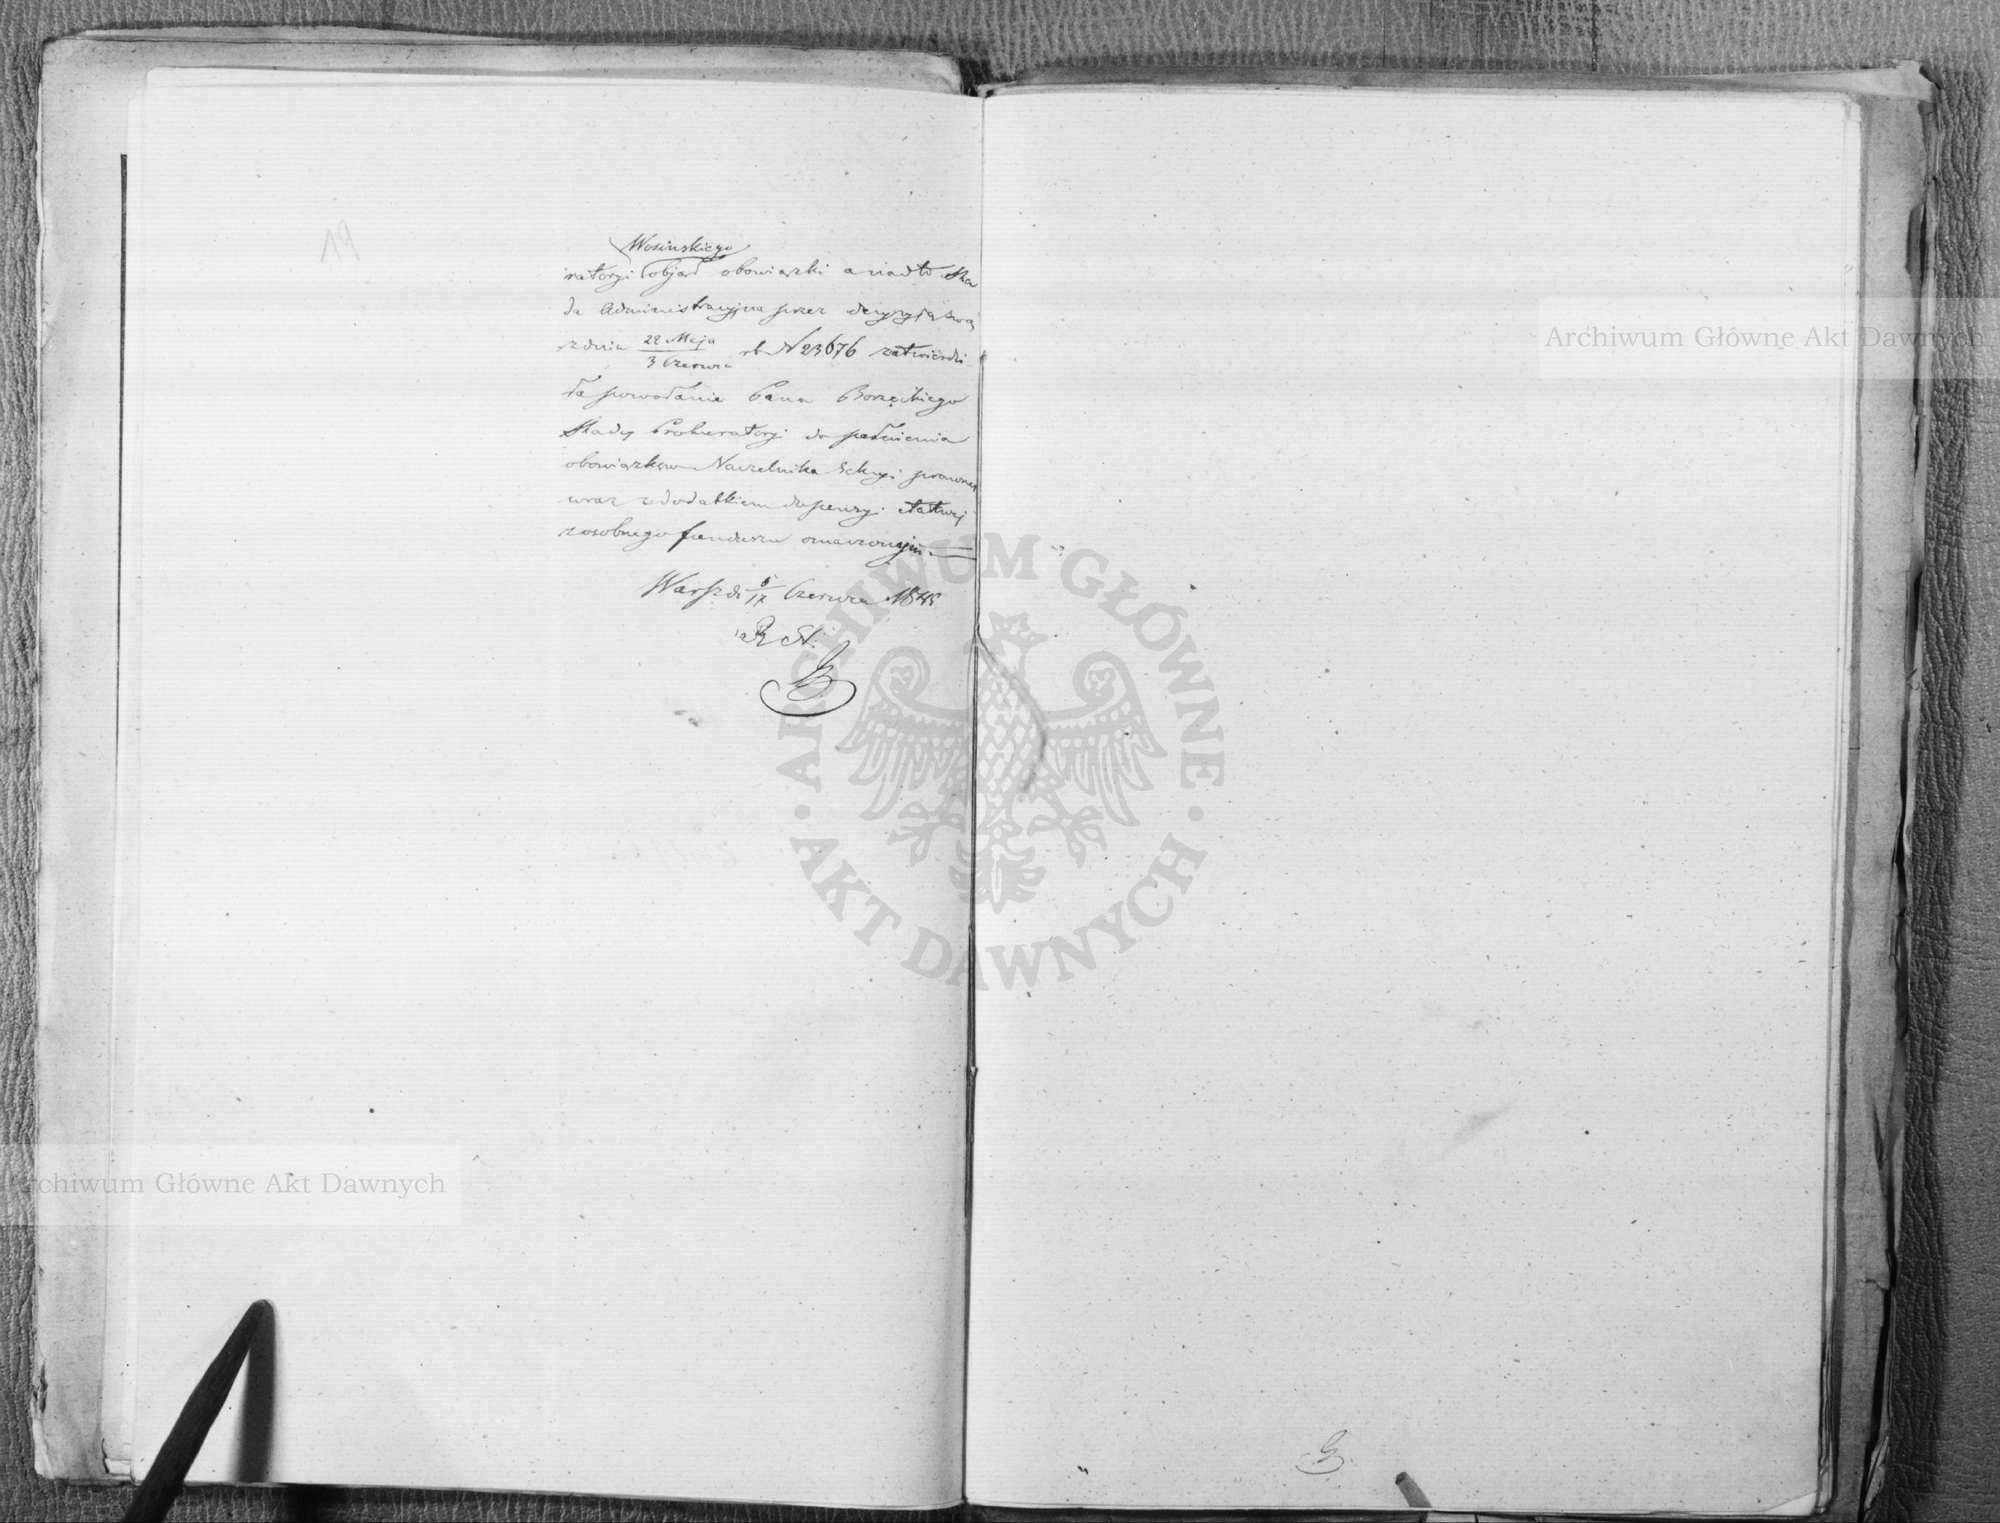 Wosinskiego
ratoryi objął obowiązki a nadto Ra
da Administracyjna przez decyzyą swą
z dnia 22 Maja / 3 Czerwca rb N 23676 zatwierdzi-
ła powołanie Pana Borzęckiego
Radcy Prokuratoryi do pełnienia
obowiązków Naczelnika Sekcyi prawnej
wraz z dodatkiem do pensyi etatowej
z osobnego funduszu oznaczonym
Warsz d 5/17 Czerwca 1845
R St.
19
Archiwum Główne Akt Dawnych
ARCHIWUM GŁÓWNE
AKT DAWNYCH
Archiwum Główne Akt Dawnych